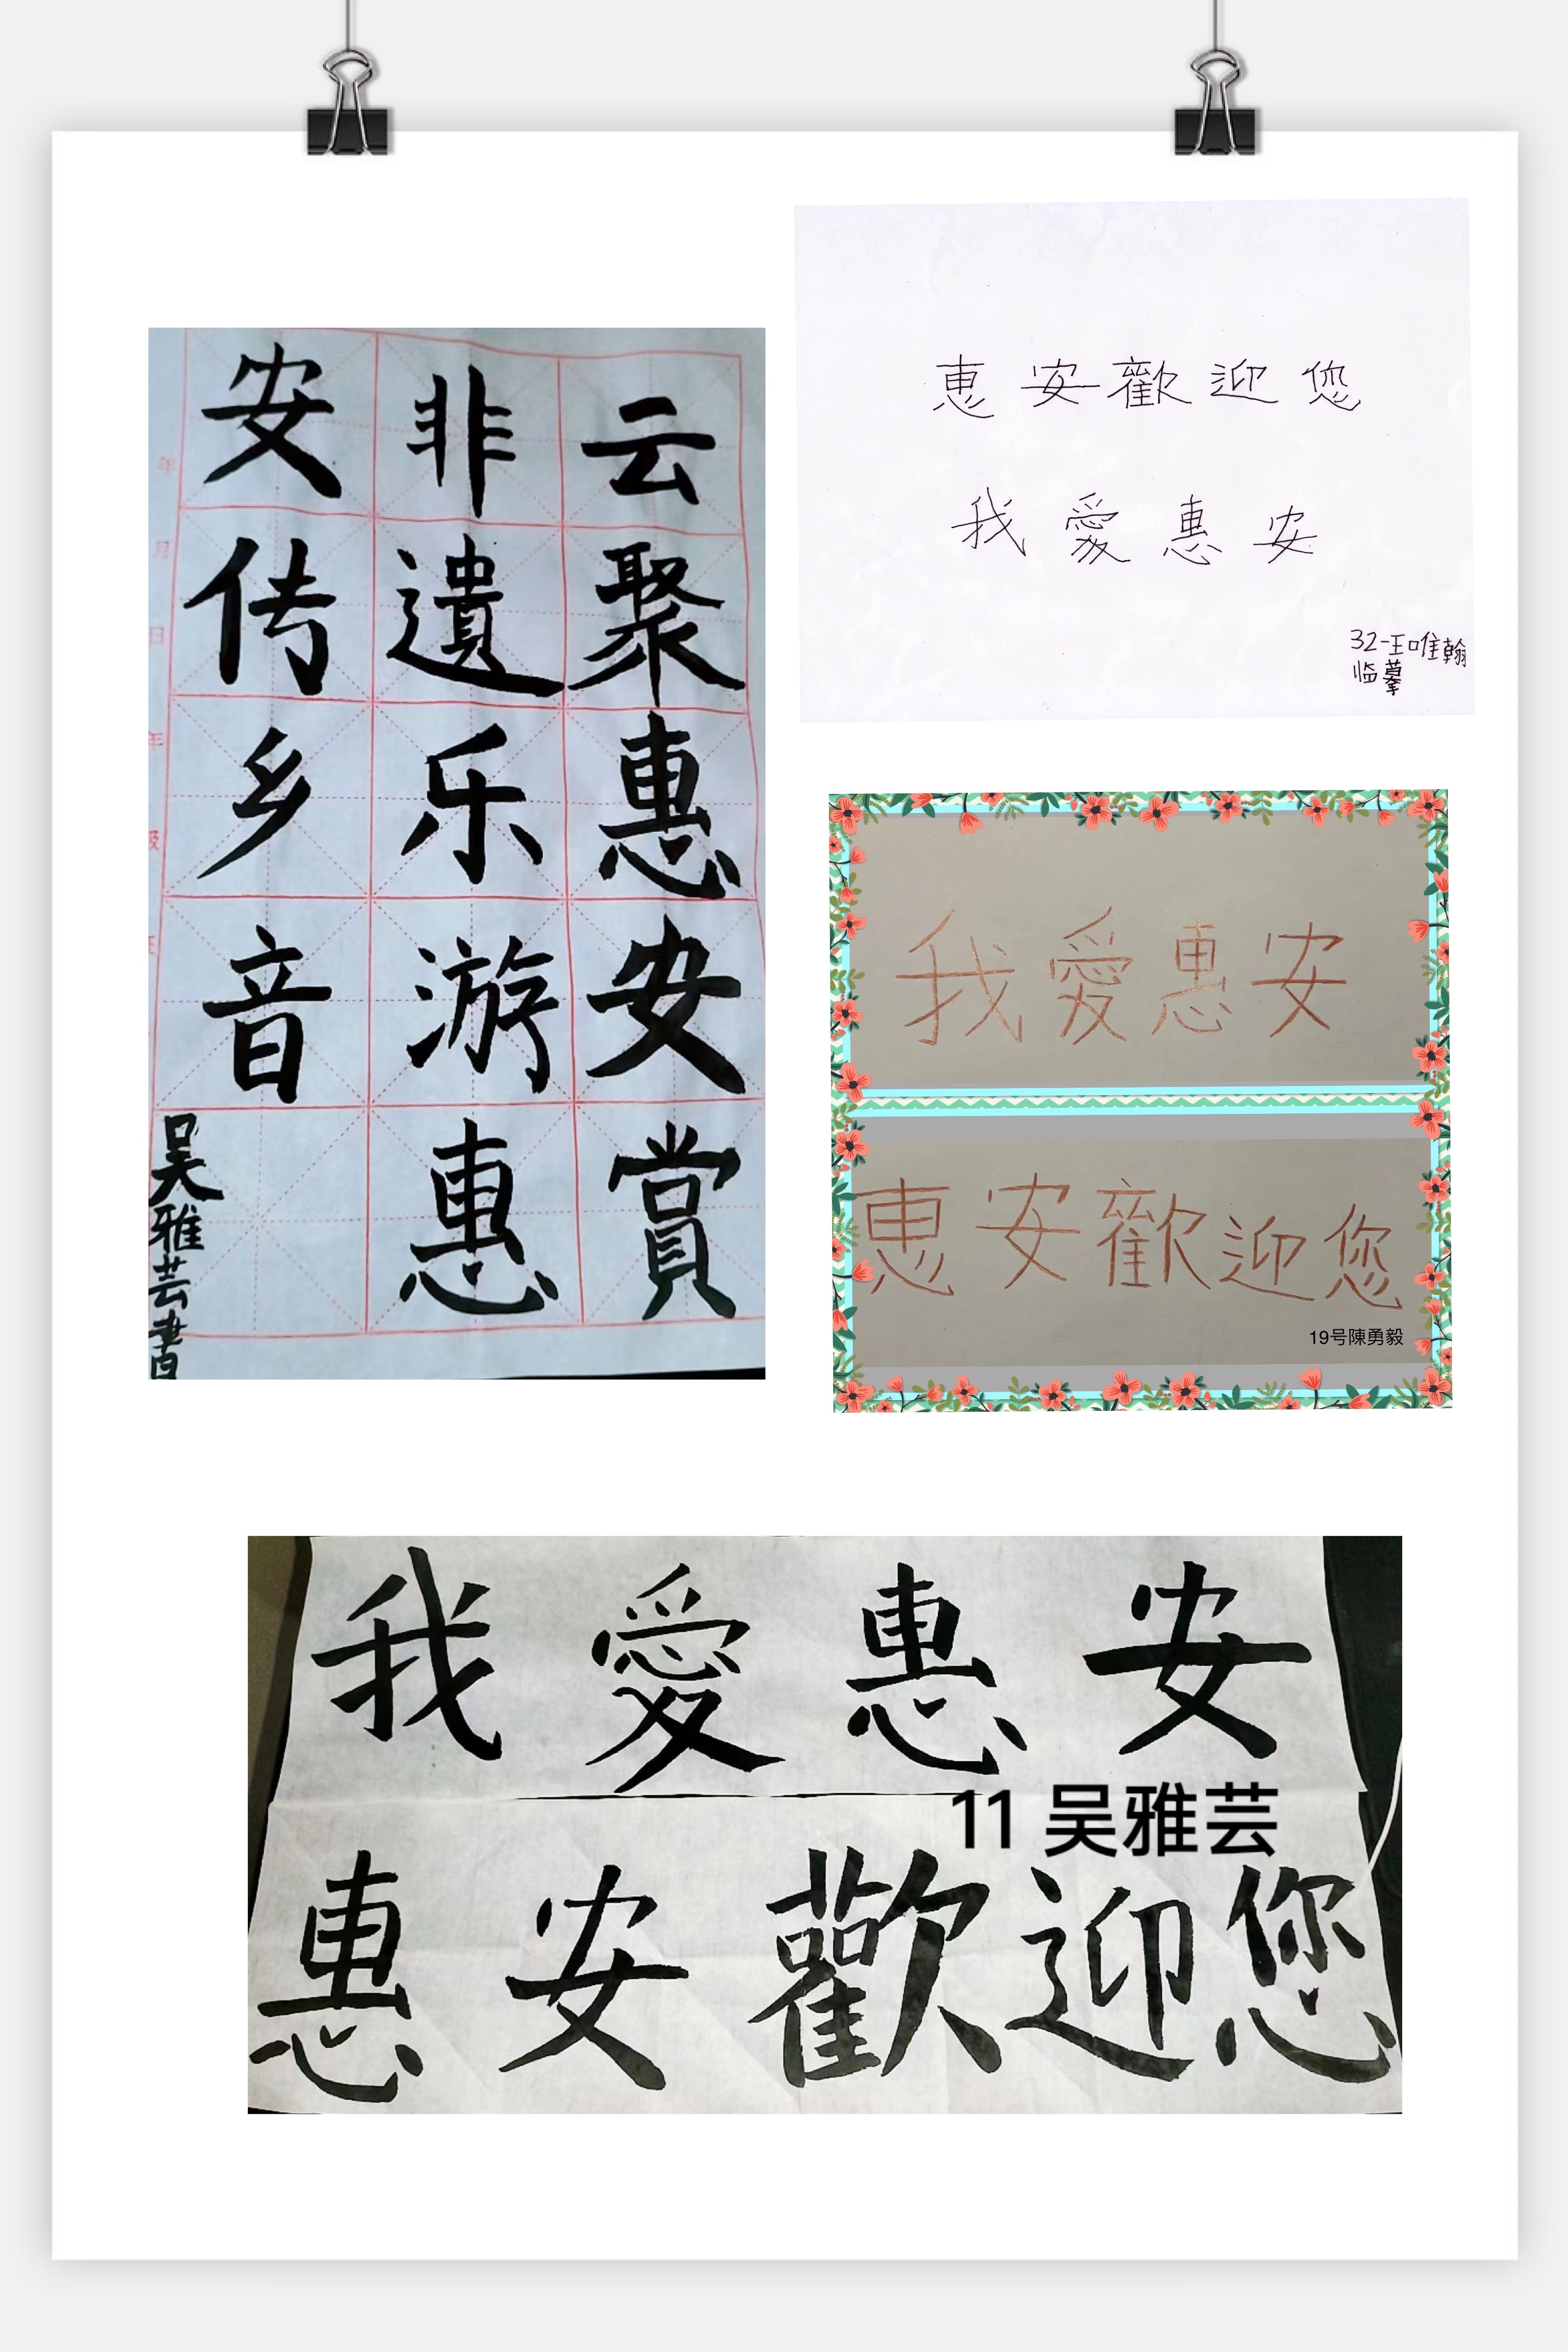 云聚惠安賞
非遺乐游惠
安传乡音
吴雅芸書
惠安歡迎您
我愛惠安
32-王唯翰
临摹
我愛惠安
惠安歡迎您
19号陳勇毅
我愛惠安
11 吴雅芸
惠安歡迎您